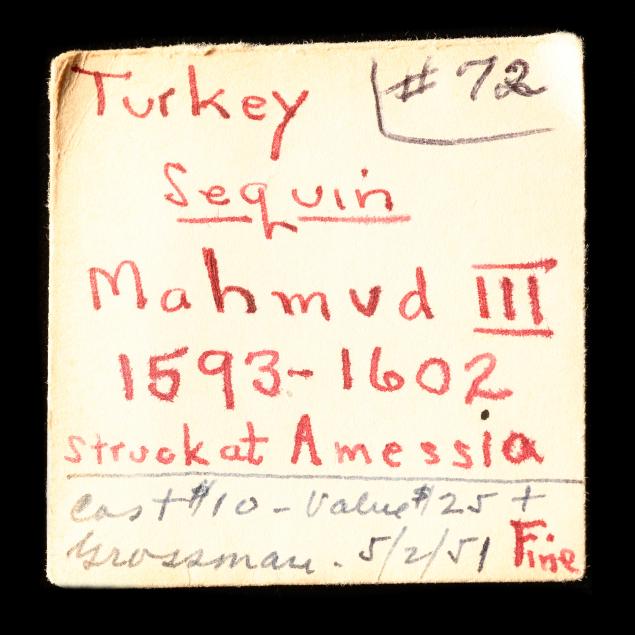 Turkey #72
Sequin
Mahmud III
1593-1602
struck at Amessia
Cost $10 - Value $25 +
Grossman. 5/2/51 Fine